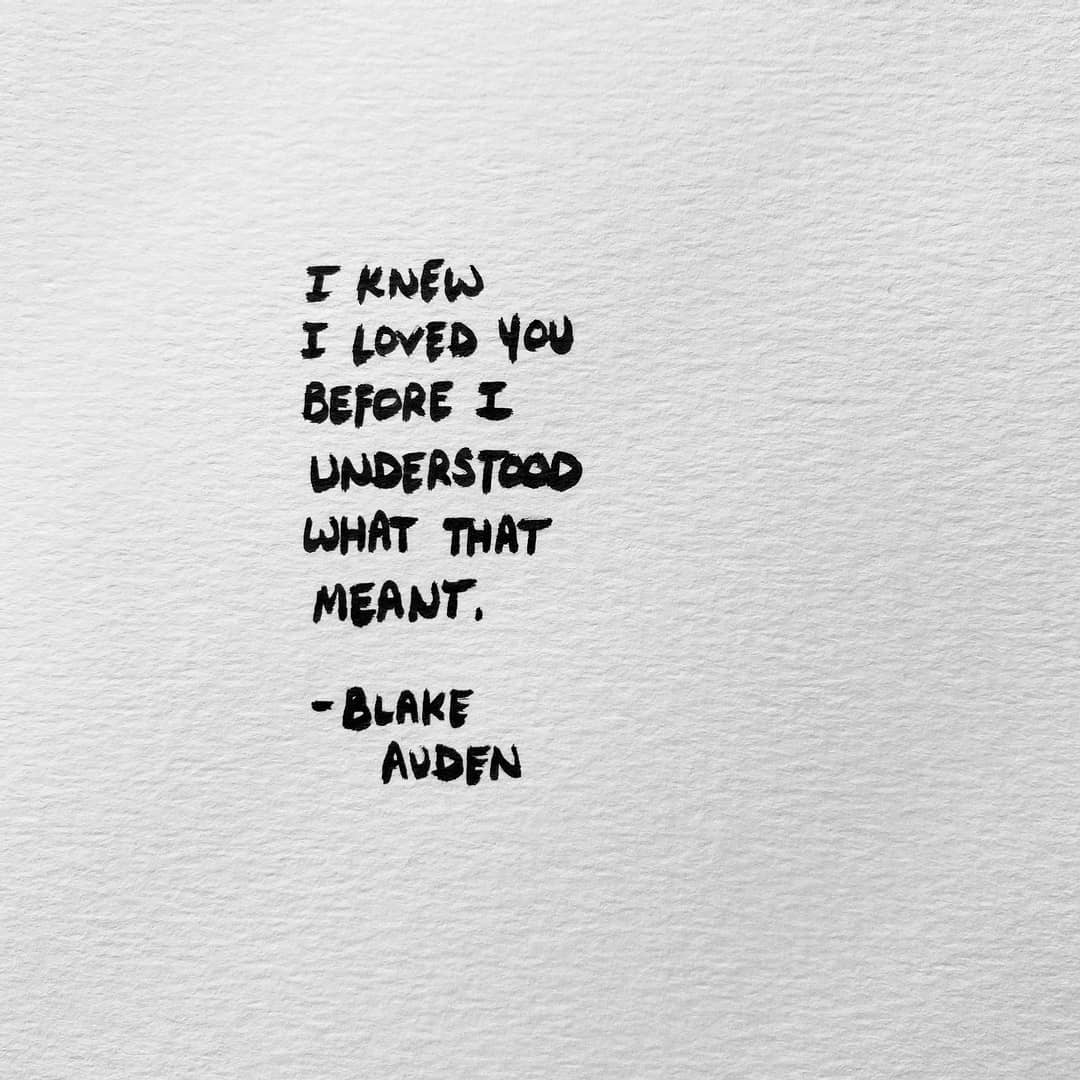 I KNEW
I LOVED YOU
BEFORE I
UNDERSTOOD
WHAT THAT
MEANT.
- BLAKE
AUDEN